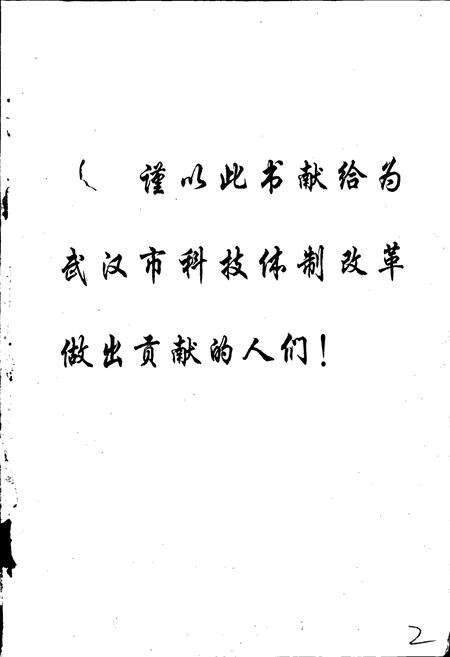 谨以此书献给为
武汉市科技体制改革
做出贡献的人们!
2